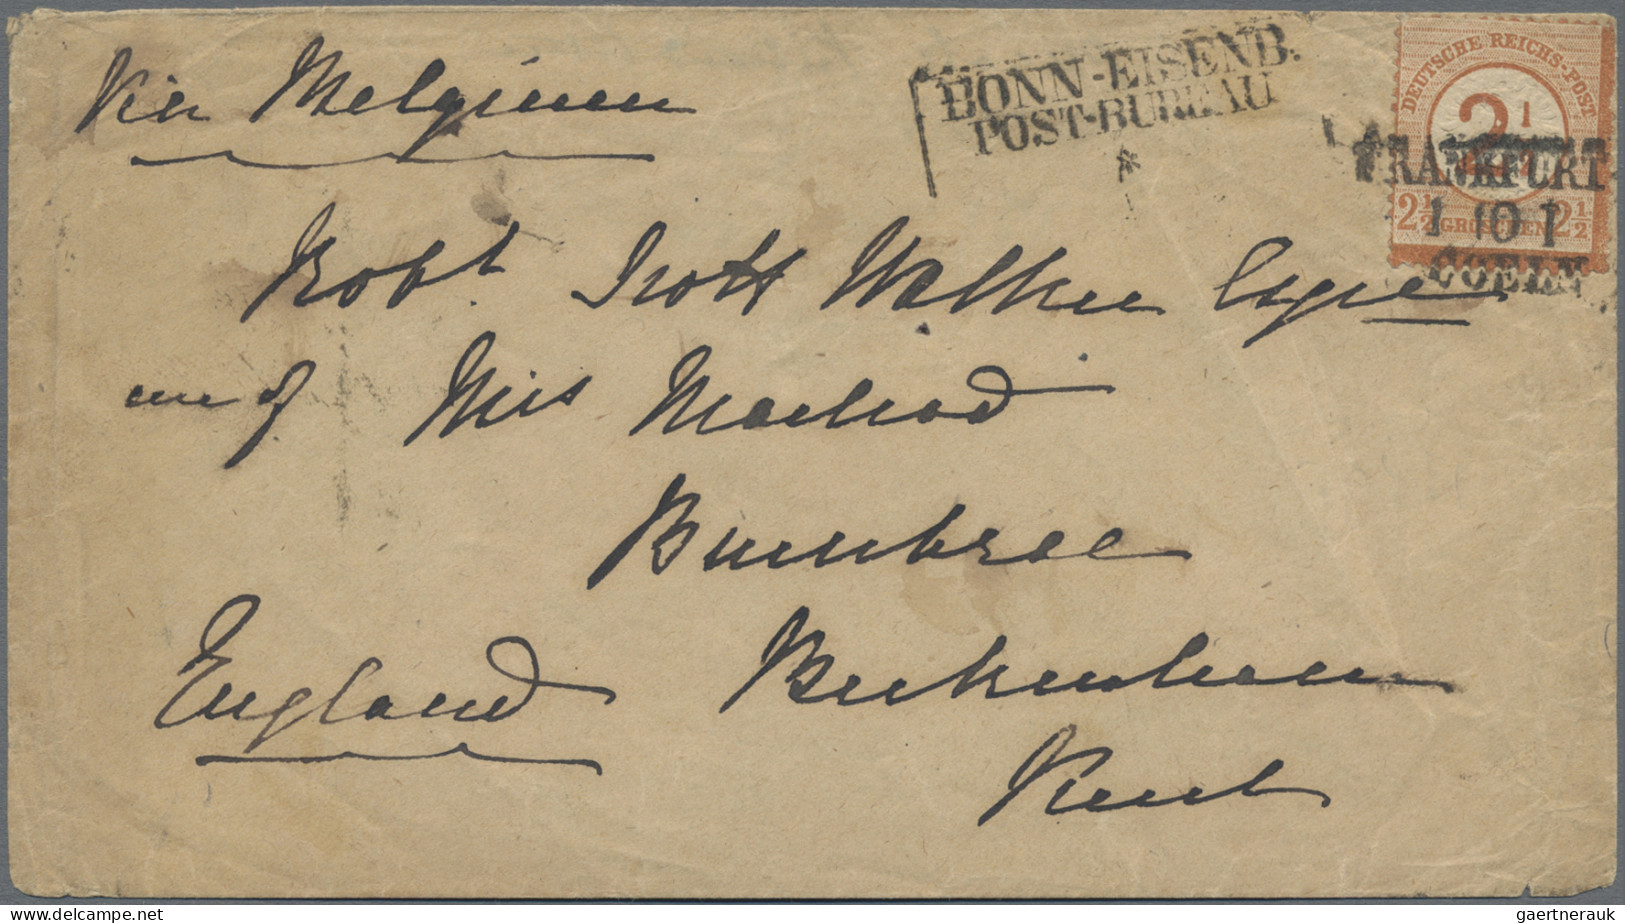 Via Belgium
BONN-EISENB.
POST-BUREAU
*
DEUTSCHE REICHS-POST
2½ GROSCHEN 2½
FRANKFURT
1 10 I
COELN
Robt Scott Walker Esqre
Miss Macleod
Beckenham
England
Kent
gaertnerauk